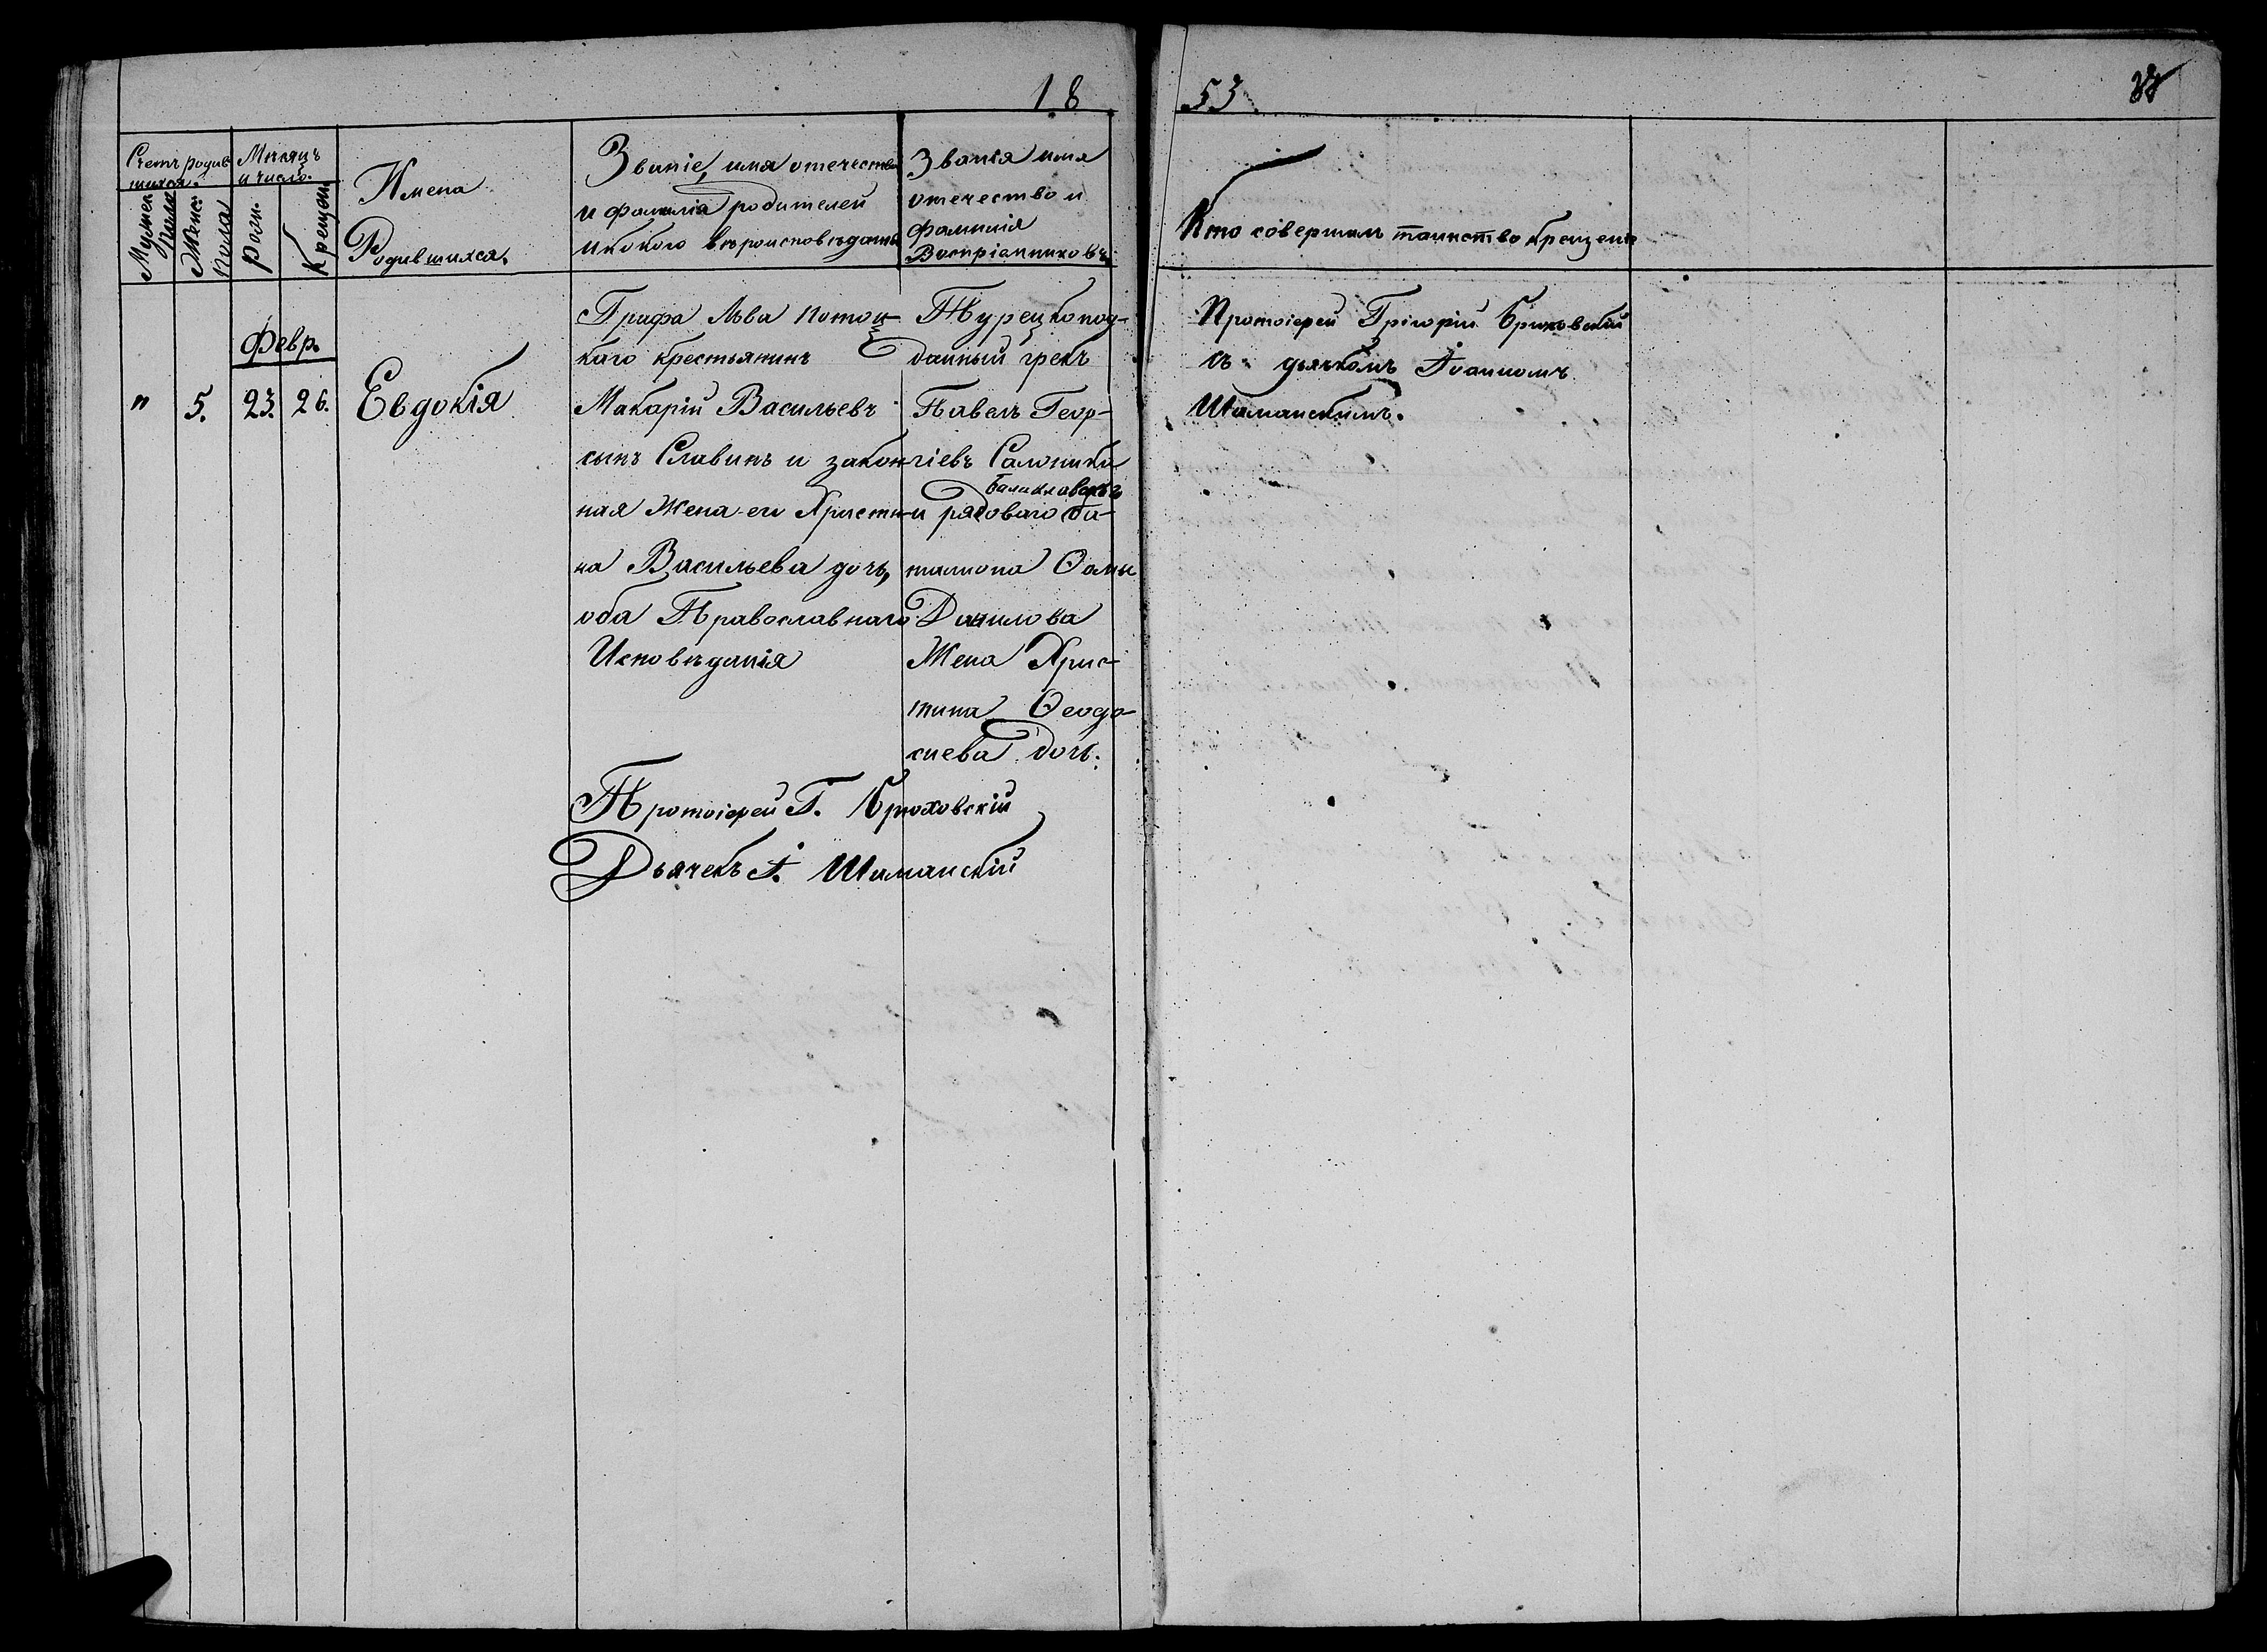 18 53
Счетъ родив-
шихся.
Мѣсяцъ
и число.
Мужеск.
Пола
Женс:
Пола
Рожн.
Крещен.
Имена
Родившихся.
Званіе, имя отечество
и фамилія родителей
и какого вѣроисповѣданія
Званія имя
отечество и
фамилія
Воспріемниковъ
Кто совершалъ таинство крещенія
Февр.
" 5. 23. 26. Евдокія
Графа Льва Потоц-
каго крестьянинъ
Макарій Васильевъ
сынъ Славинъ и закон-
ная Жена его Христи-
на Васильева дочь,
оба Православнаго
Исповѣданія
Турецкопод-
данный грекъ
Павелъ Геор-
гіевъ Салоники
Балаклавскаго
и рядоваго ба-
таліона Ѳомы
Данилова
Жена Хрис-
тина Ѳеодо-
сиева дочь.
Протоіерей Григорій Брюховскій
съ дьячкомъ Іоанномъ
Шаманскимъ.
Протоіерей Г. Брюховскій
Дьячекъ І. Шаманскій